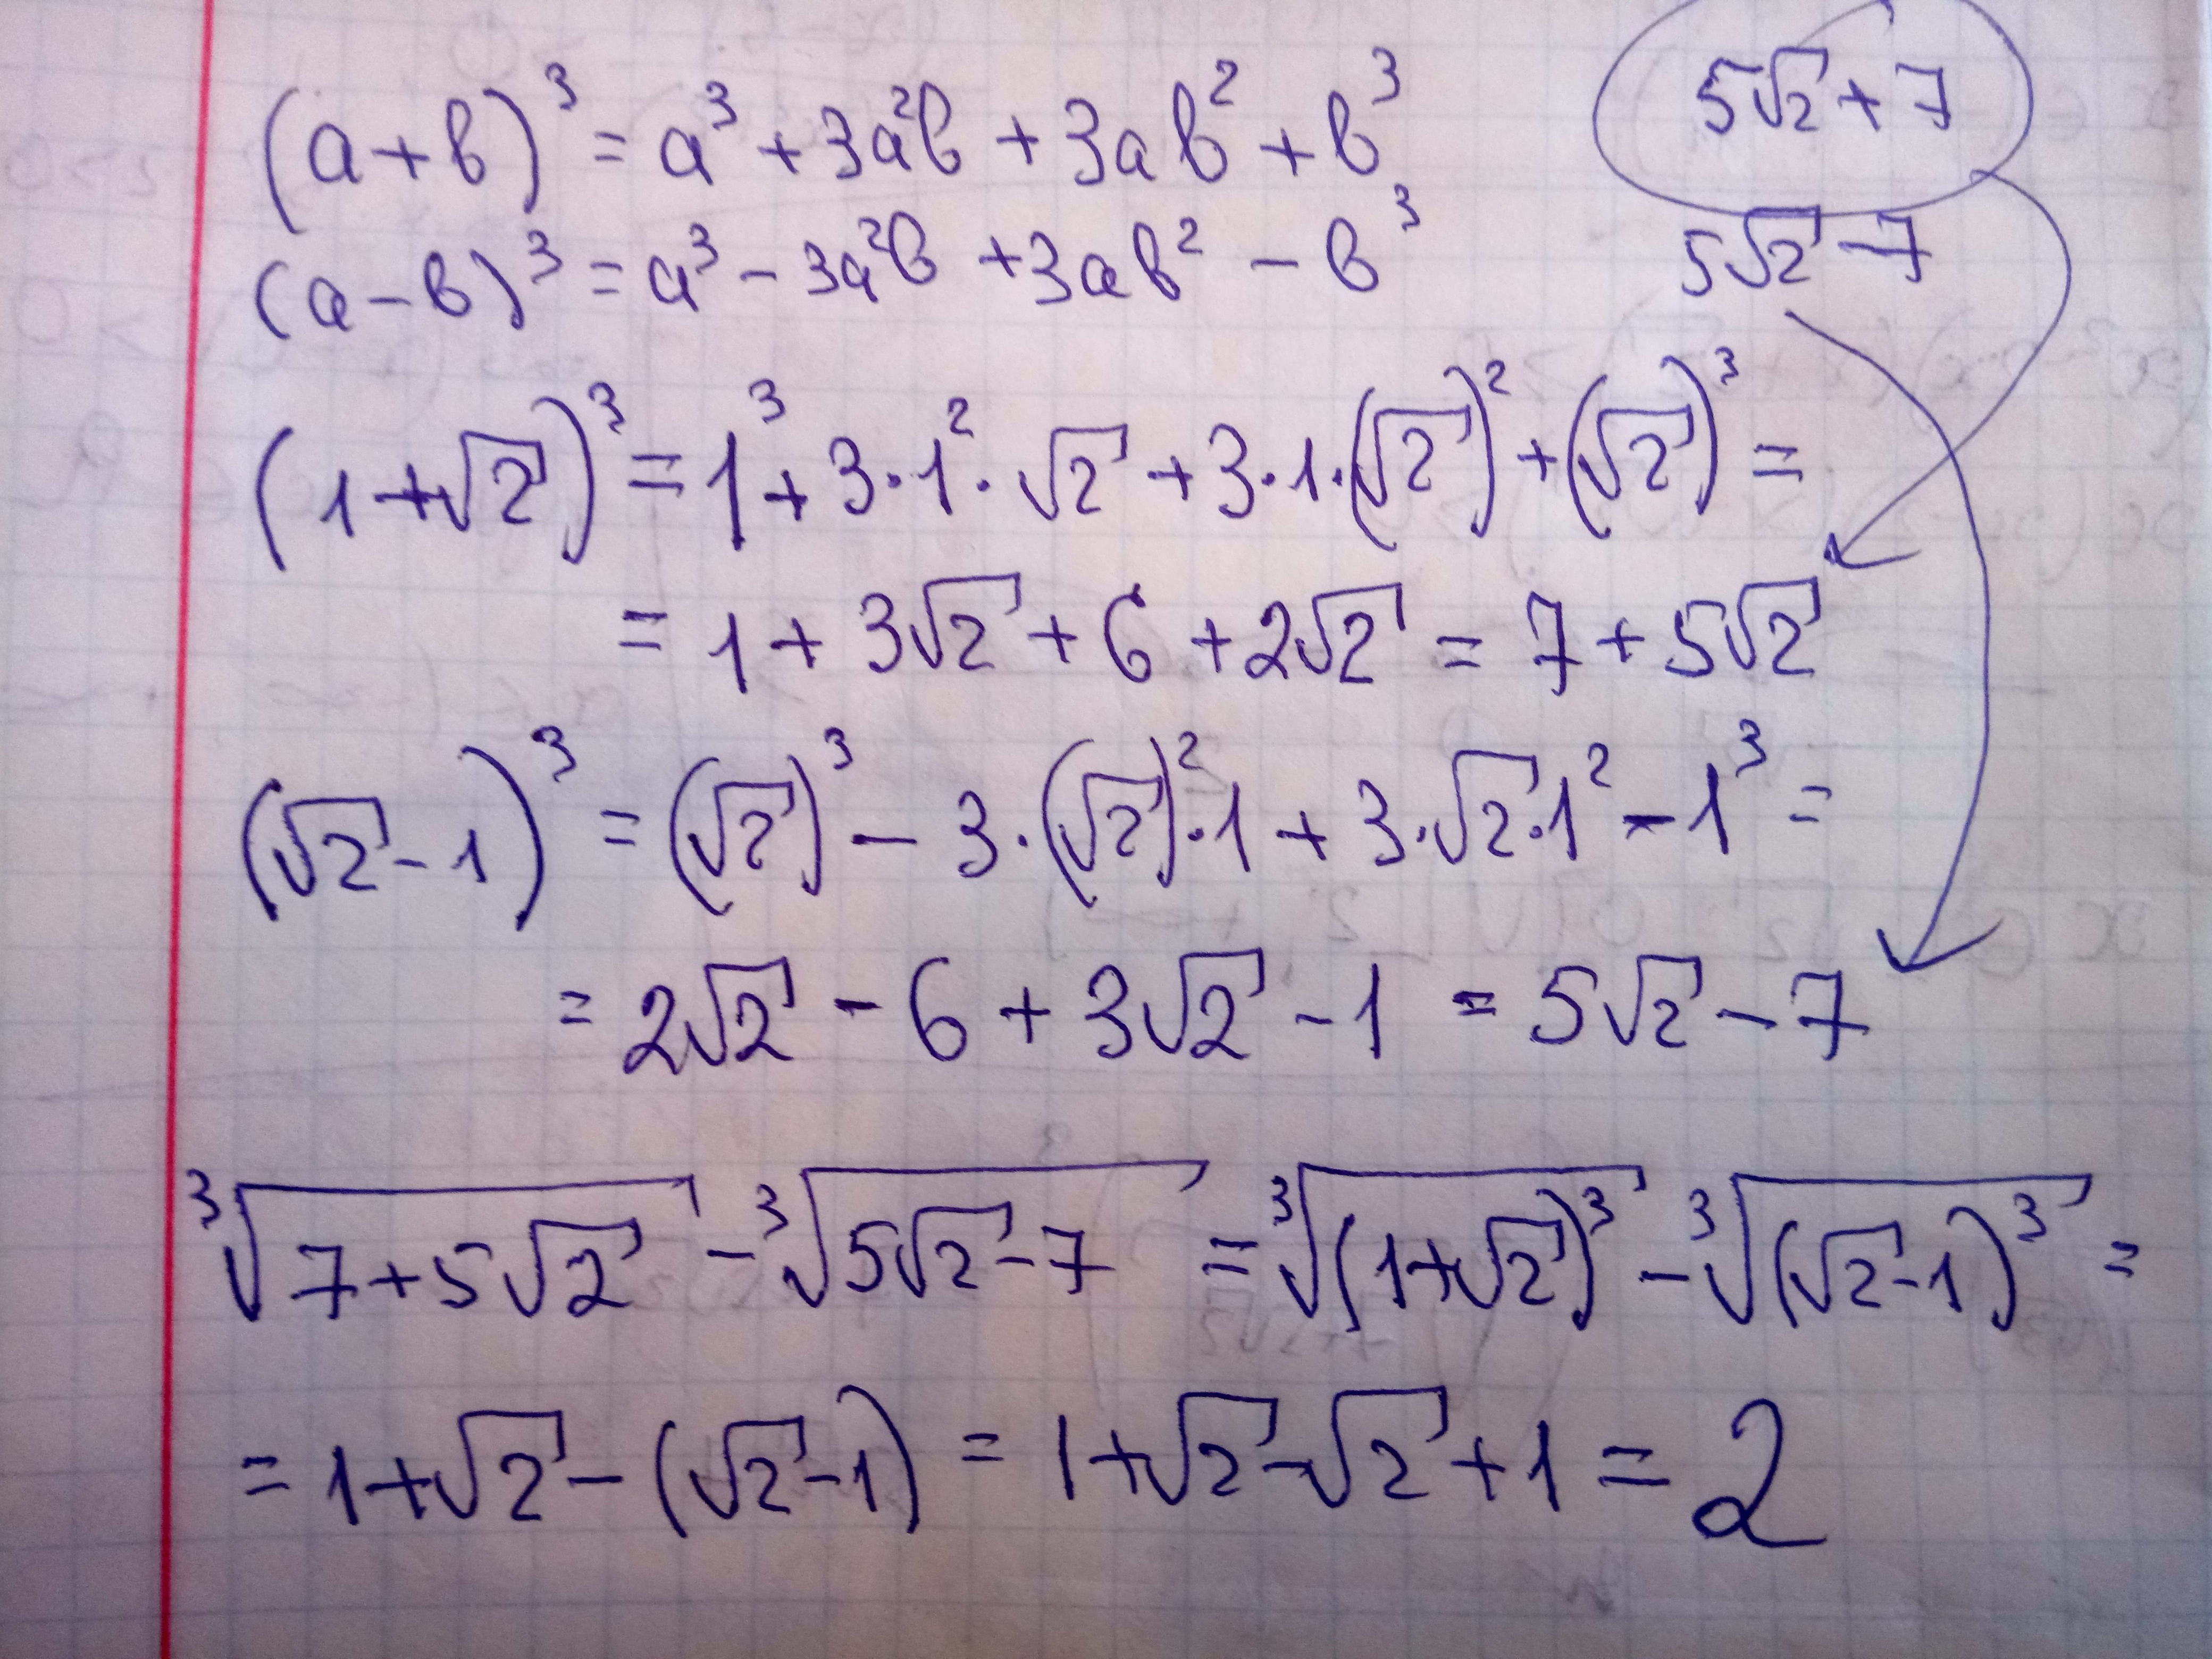 (a+b)³ = a³ + 3a²b + 3ab² + b³
5√2 + 7
(a-b)³ = a³ - 3a²b + 3ab² - b³
5√2 - 7
(1+√2)³ = 1³ + 3·1²·√2 + 3·1·(√2)² + (√2)³ =
= 1 + 3√2 + 6 + 2√2 = 7 + 5√2
(√2-1)³ = (√2)³ - 3·(√2)²·1 + 3·√2·1² - 1³ =
= 2√2 - 6 + 3√2 - 1 = 5√2 - 7
∛(7+5√2) - ∛(5√2-7) = ∛((1+√2)³) - ∛((√2-1)³) =
= 1+√2 - (√2-1) = 1+√2-√2+1 = 2